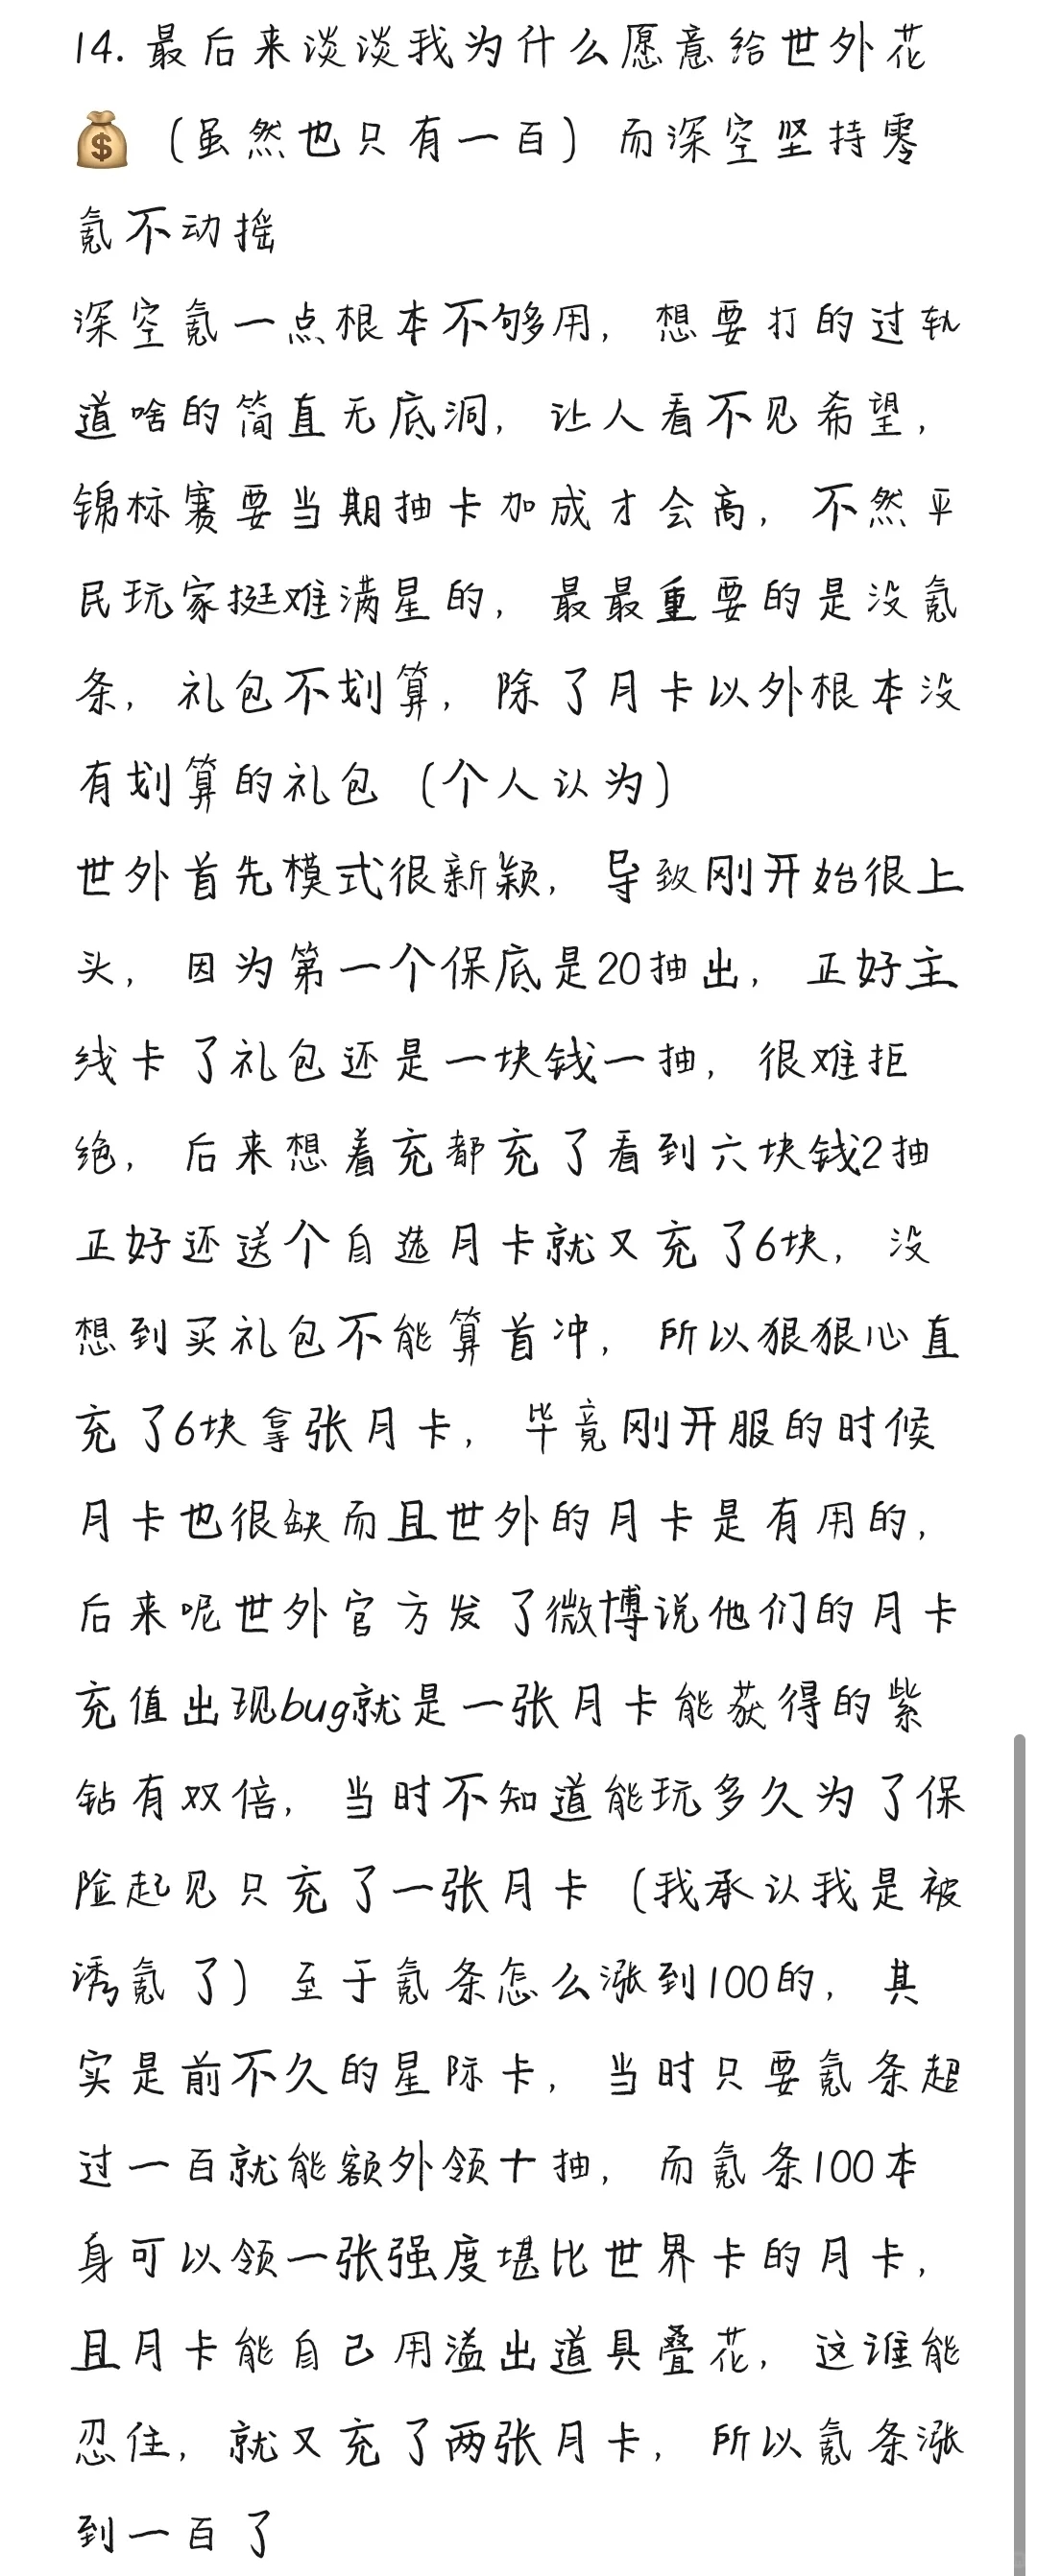 14. 最后来淡淡我为什么愿意给世外花
💰（虽然也只有一百）而深空坚持零
氪不动摇
深空氪一点根本不够用，想要打的过轨
道啥的简直无底洞，让人看不见希望，
锦标赛要当期抽卡加成才会高，不然平
民玩家挺难满星的，最最重要的是没氪
条，礼包不划算，除了月卡以外根本没
有划算的礼包（个人认为）
世外首先模式很新颖，导致刚开始很上
头，因为第一个保底是20抽出，正好主
线卡了礼包还是一块钱一抽，很难拒
绝，后来想着充都充了看到六块钱2抽
正好还送个自选月卡就又充了6块，没
想到买礼包不能算首冲，所以狠狠心直
充了6块拿张月卡，毕竟刚开服的时候
月卡也很缺而且世外的月卡是有用的，
后来呢世外官方发了微博说他们的月卡
充值出现bug就是一张月卡能获得的紫
钻有双倍，当时不知道能玩多久为了保
险起见只充了一张月卡（我承认我是被
诱氪了）至于氪条怎么涨到100的，其
实是前不久的星际卡，当时只要氪条超
过一百就能额外领十抽，而氪条100本
身可以领一张强度堪比世界卡的月卡，
且月卡能自己用溢出道具叠花，这谁能
忍住，就又充了两张月卡，所以氪条涨
到一百了